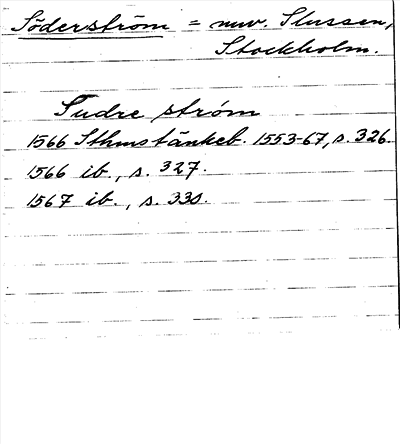 Söderström = nuv. Slussen,
Stockholm.
Sudre ström
1566 Sthmstänkeb. 1553-67, s. 326.
1566 ib., s. 327.
1567 ib., s. 330.